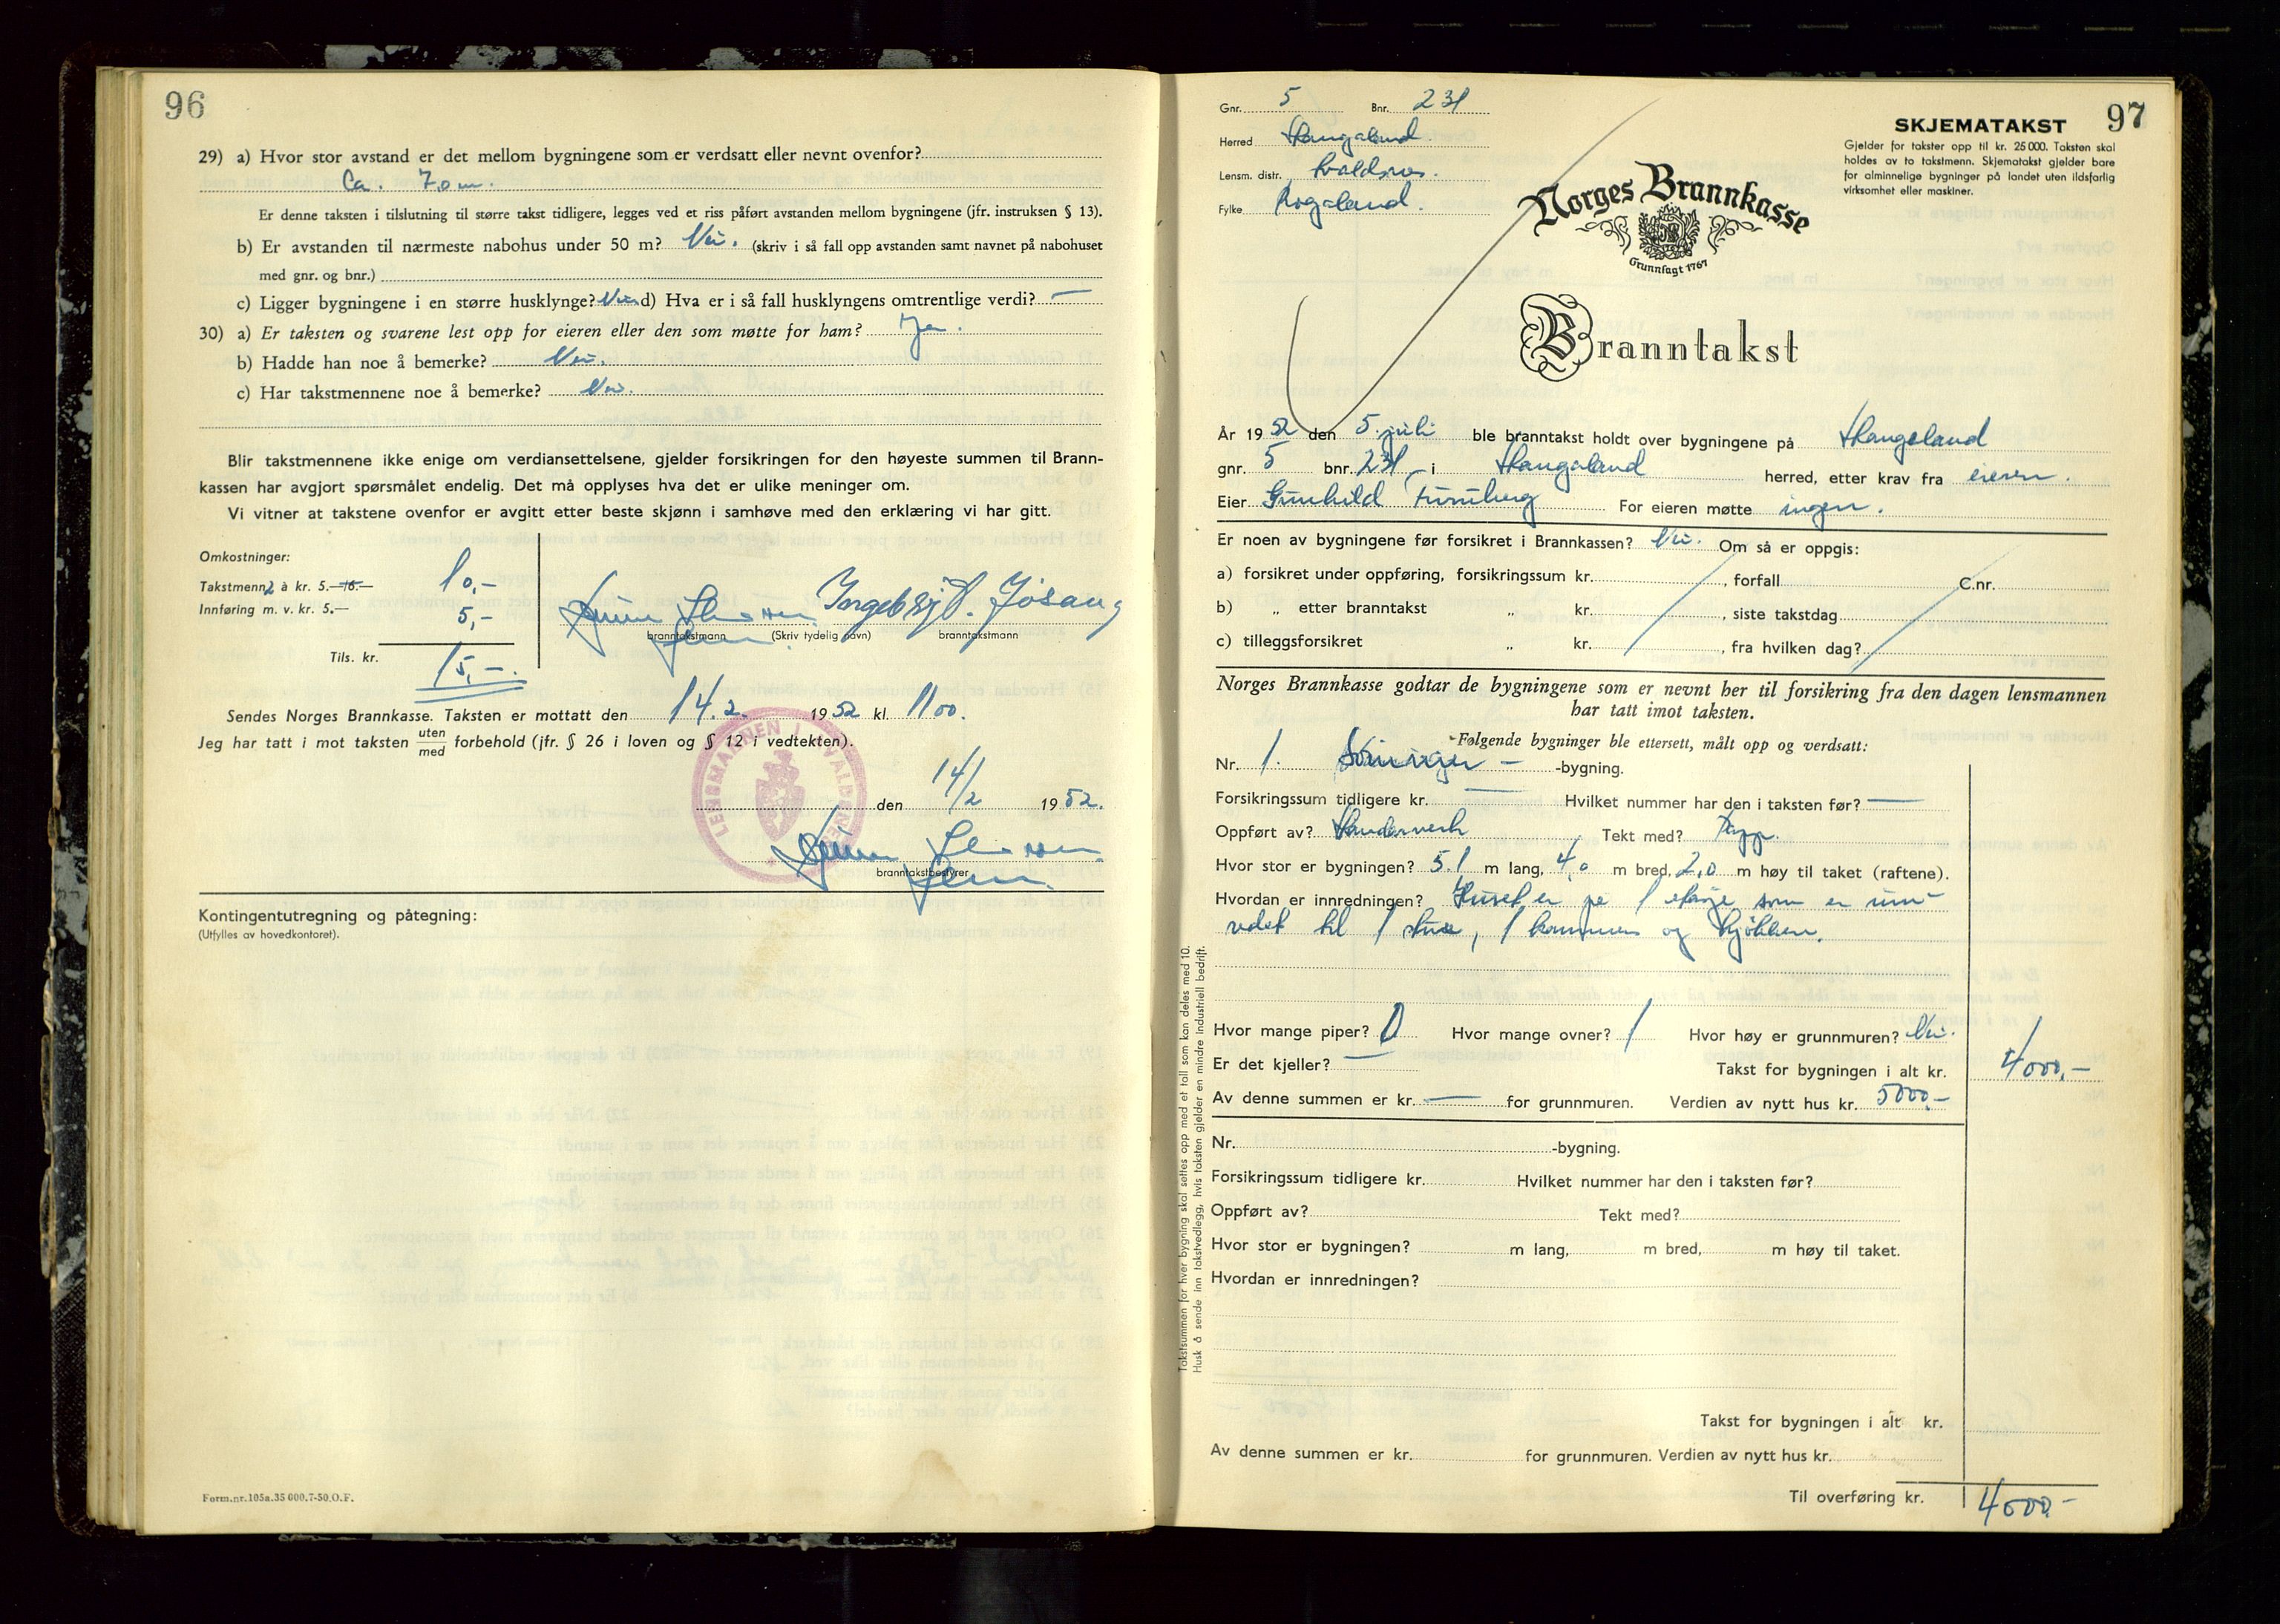 96
29) a) Hvor stor avstand er det mellom bygningene som er verdsatt eller nevnt ovenfor?
Ca. 70 m.
Er denne taksten i tilslutning til større takst tidligere, legges ved et riss påført avstanden mellom bygningene (jfr. instruksen § 13).
b) Er avstanden til nærmeste nabohus under 50 m? Nei. (skriv i så fall opp avstanden samt navnet på nabohuset
med gnr. og bnr.)
c) Ligger bygningene i en større husklynge? Nei d) Hva er i så fall husklyngens omtrentlige verdi? —
30) a) Er taksten og svarene lest opp for eieren eller den som møtte for ham? Ja.
b) Hadde han noe å bemerke? Nei.
c) Har takstmennene noe å bemerke? Nei.
Blir takstmennene ikke enige om verdiansettelsene, gjelder forsikringen for den høyeste summen til Brann-
kassen har avgjort spørsmålet endelig. Det må opplyses hva det er ulike meninger om.
Vi vitner at takstene ovenfor er avgitt etter beste skjønn i samhøve med den erklæring vi har gitt.
Omkostninger:
Takstmenn 2 à kr. 5.— 10,-
Innføring m. v. kr. 5.— 5,-
Tils. kr. 15,-.
Ingebrigt. Jösang
branntakstmann (Skriv tydelig navn) branntakstmann
Sendes Norges Brannkasse. Taksten er mottatt den 14.2. 1952 kl. 11 00.
Jeg har tatt i mot taksten uten/med forbehold (jfr. § 26 i loven og § 12 i vedtekten).
LENSMANNEN I AVALDSNES
den 14/2 1952.
branntakstbestyrer
Kontingentutregning og påtegning:
(Utfylles av hovedkontoret).
Form.nr.105a.35 000.7-50.O.F.
97
Gnr. 5 Bnr. 231
Herred Haugaland.
Lensm. distr. Avaldsnes.
Fylke Rogaland.
SKJEMATAKST
Gjelder for takster opp til kr. 25 000. Taksten skal
holdes av to takstmenn. Skjematakst gjelder bare
for alminnelige bygninger på landet uten ildsfarlig
virksomhet eller maskiner.
Norges Brannkasse
Grunnlagt 1767
Branntakst
År 1952 den 5. juli ble branntakst holdt over bygningene på Haugaland
gnr. 5 bnr. 231 i Haugaland herred, etter krav fra eieren.
Eier Gunhild Furuberg For eieren møtte ingen.
Er noen av bygningene før forsikret i Brannkassen? Nei. Om så er oppgis:
a) forsikret under oppføring, forsikringssum kr. , forfall C.nr.
b) „ etter branntakst „ kr. , siste takstdag
c) tilleggsforsikret „ kr. , fra hvilken dag?
Norges Brannkasse godtar de bygningene som er nevnt her til forsikring fra den dagen lensmannen
har tatt imot taksten.
Følgende bygninger ble ettersett, målt opp og verdsatt:
Nr. 1. -bygning.
Forsikringssum tidligere kr. — Hvilket nummer har den i taksten før? —
Oppført av? Tekt med? Papp.
Hvor stor er bygningen? 5.1 m lang, 4,0 m bred, 2,0 m høy til taket (raftene).
Hvordan er innredningen? Huset er på 1 etasje som er inn-
redet til 1 stue, 1 kammers og kjøkken.
Hvor mange piper? 0 Hvor mange ovner? 1 Hvor høy er grunnmuren? Nei.
Er det kjeller? — Takst for bygningen i alt kr. 4000,-
Av denne summen er kr. — for grunnmuren. Verdien av nytt hus kr. 5000,-
Nr. -bygning.
Forsikringssum tidligere kr. Hvilket nummer har den i taksten før?
Oppført av? Tekt med?
Hvor stor er bygningen? m lang, m bred, m høy til taket.
Hvordan er innredningen?
Takst for bygningen i alt kr.
Av denne summen er kr. for grunnmuren. Verdien av nytt hus kr.
Til overføring kr. 4000.-
Takstsummen for hver bygning skal settes opp med et tall som kan deles med 10.
Husk å sende inn takstvedlegg, hvis taksten gjelder en mindre industriell bedrift.